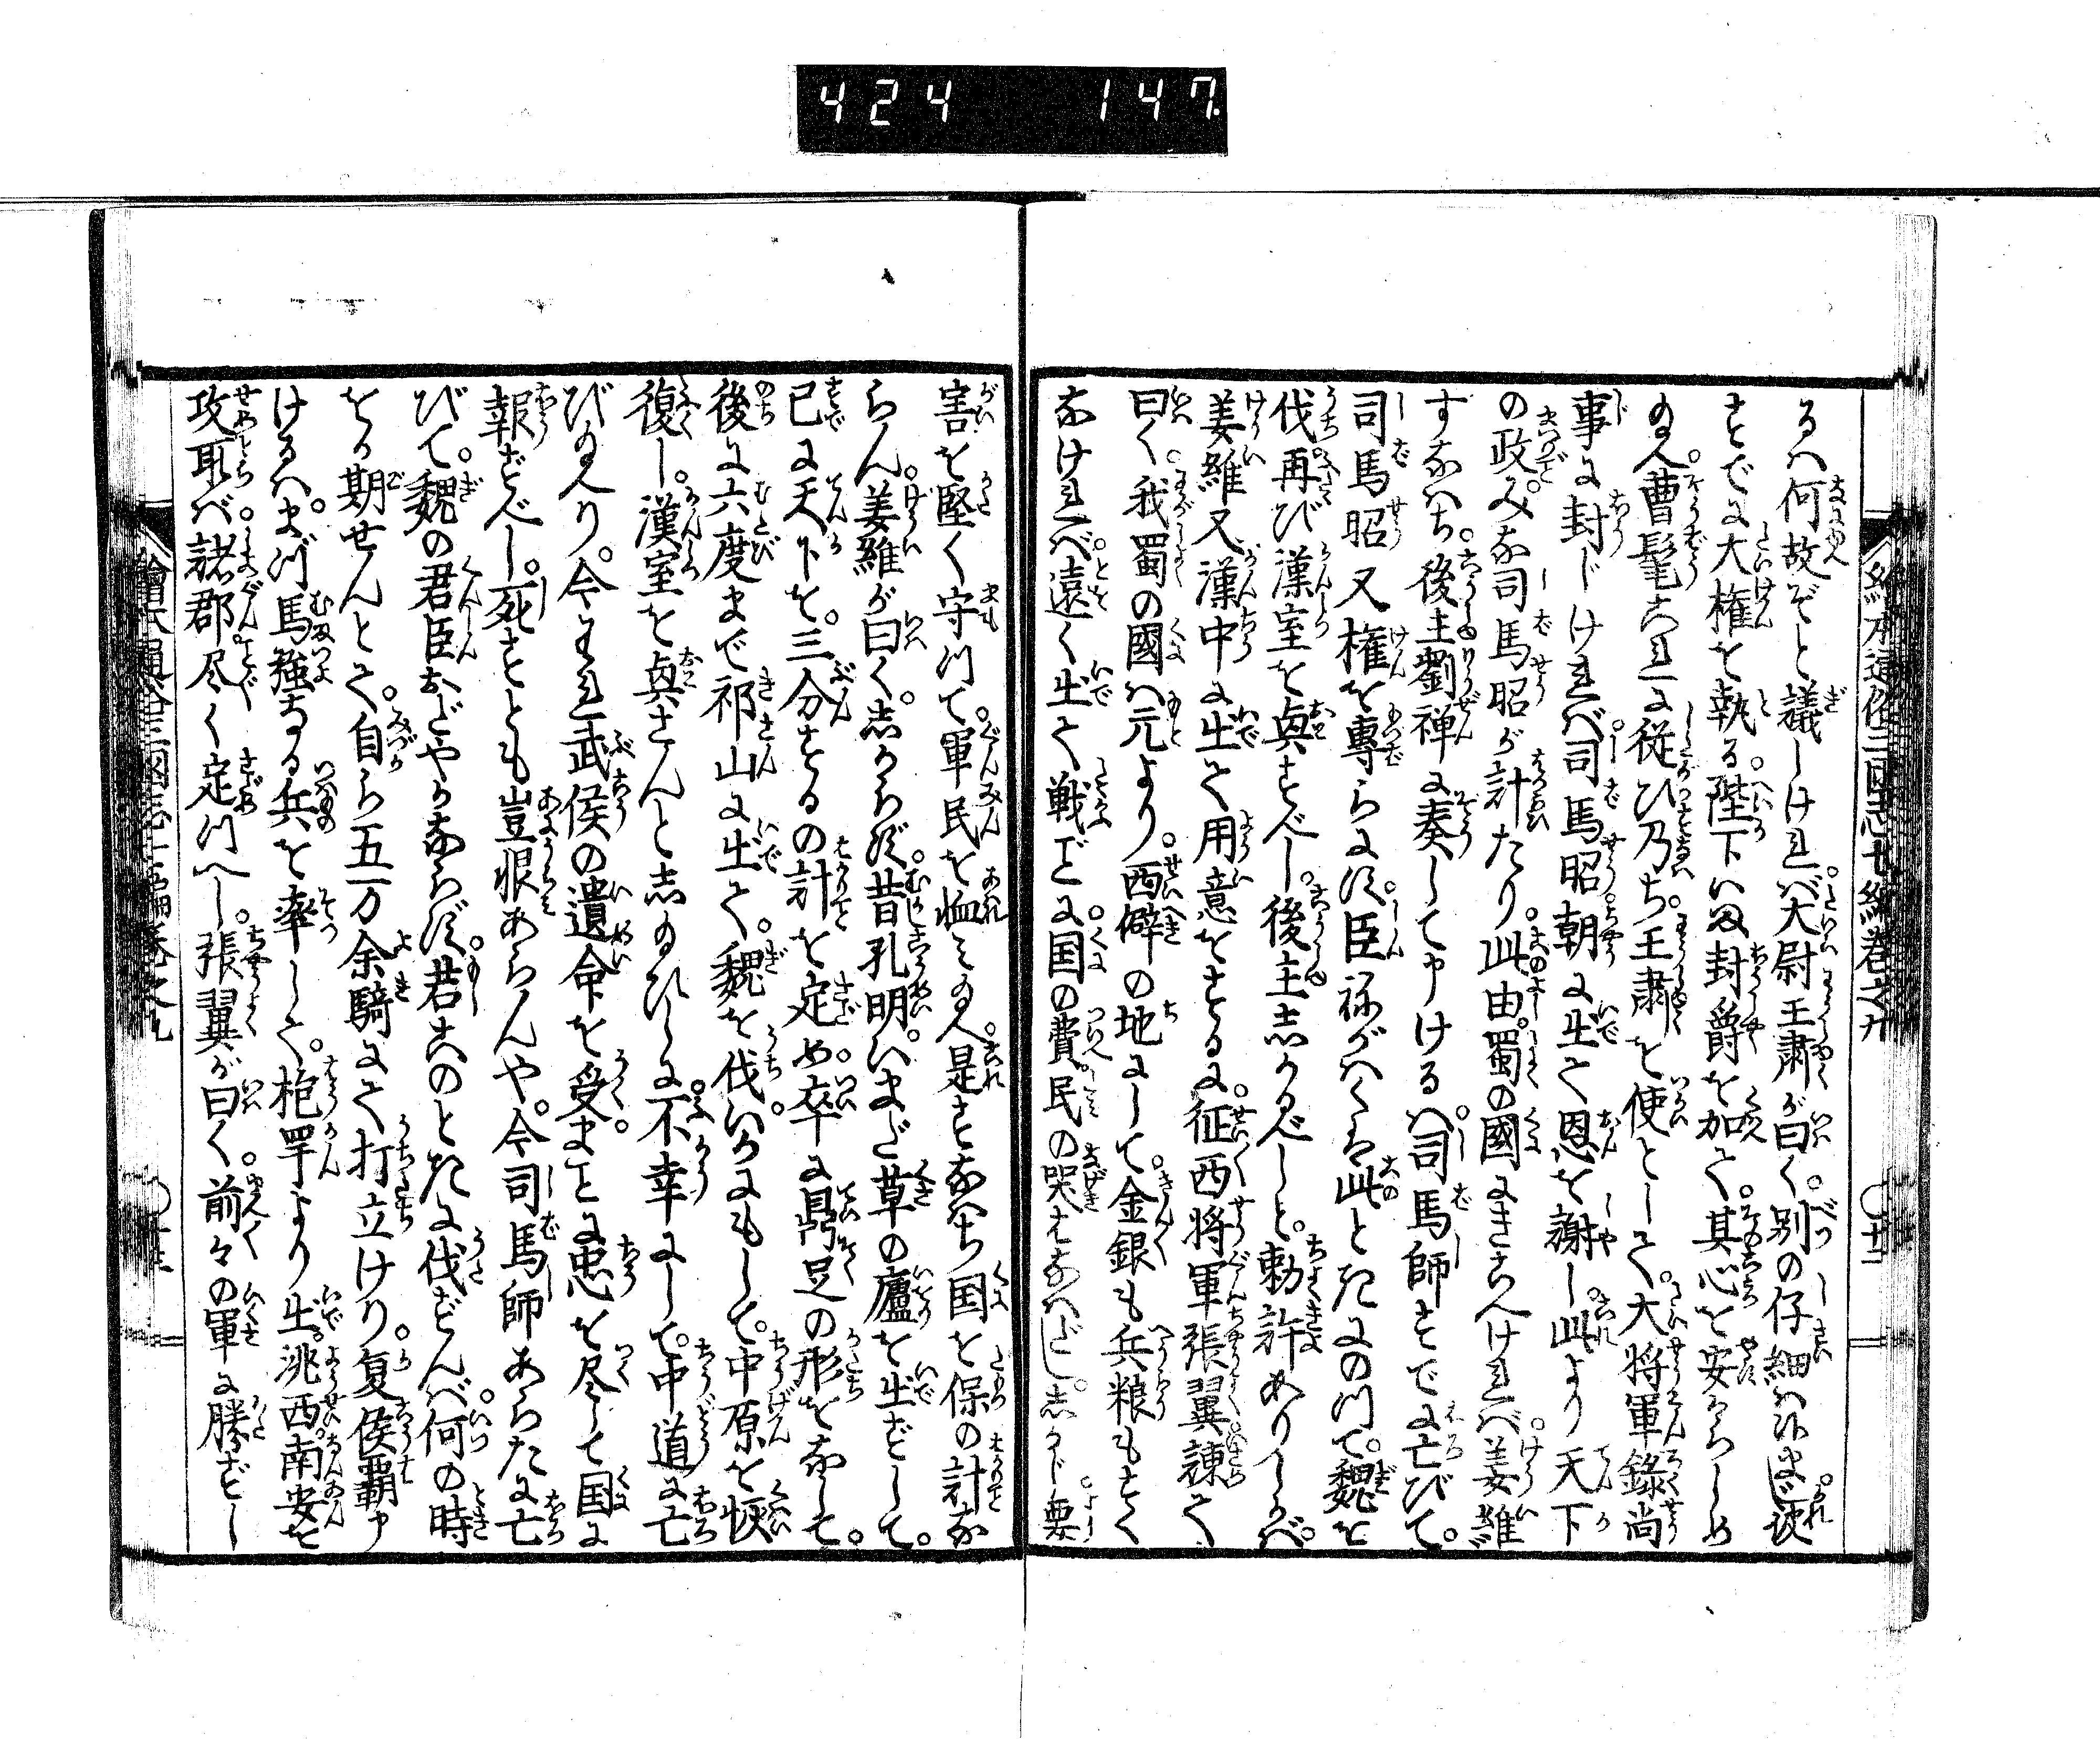 424 147.
るハ何故ぞと議しけれバ大尉王肅が曰く。別の仔細ハ候まじ彼
すでに大権を執る。陛下いま封爵を加て。其心を安からしめ
給へ。曹髦これに従ひ乃ち。王肅を使として。大将軍錄尚
事に封じけれバ司馬昭。朝に出て恩を謝し。此より天下
の政みな司馬昭が計たり。此由。蜀の國にきこへけれバ。姜維
すなハち。後主劉禅に奏して申けるハ。司馬師すでに亡びて。
司馬昭又権を專らにす。臣ねがハくは此ときにのつて。魏を
伐。再び漢室を興すべし。後主志かるべしと。勅許ありしかバ。
姜維又漢中に出て用意をするに。征西将軍張翼。諌て
曰く。我蜀の國ハ元より。西僻の地にして。金銀も兵粮もすく
なけれバ。遠く出て戦ごとに。国の費民の哭たなハざし。志かじ要
害を堅く守つて。軍民を恤み給へ。是すなハち国を保の計な
らん。姜維が曰く。志からず。昔孔明。いまだ草の廬を出ずして。
已に天下を。三分するの計を定め。卒に鼎足の形をなして。
後に六度まで祁山に出て。魏を伐。いかにもして。中原を恢
復し。漢室を興さんと志給ひしに。不幸にして。中道に亡
び給へり。今われ武侯の遺命を受。まことに忠を尽して国に
報ずべし。死すとも豈恨あらんや。今司馬師あらたに亡
びて。魏の君臣おだやかならず。若このときに伐ずんバ。何の時
をか期せんとて。自ら五万余騎にて打立けり。夏侯覇申
けるハ。まづ馬強なる兵を率して。枹罕より出。洮西。南安を
攻取バ。諸郡尽く定つべし。張翼が曰く。前々の軍に勝ずし